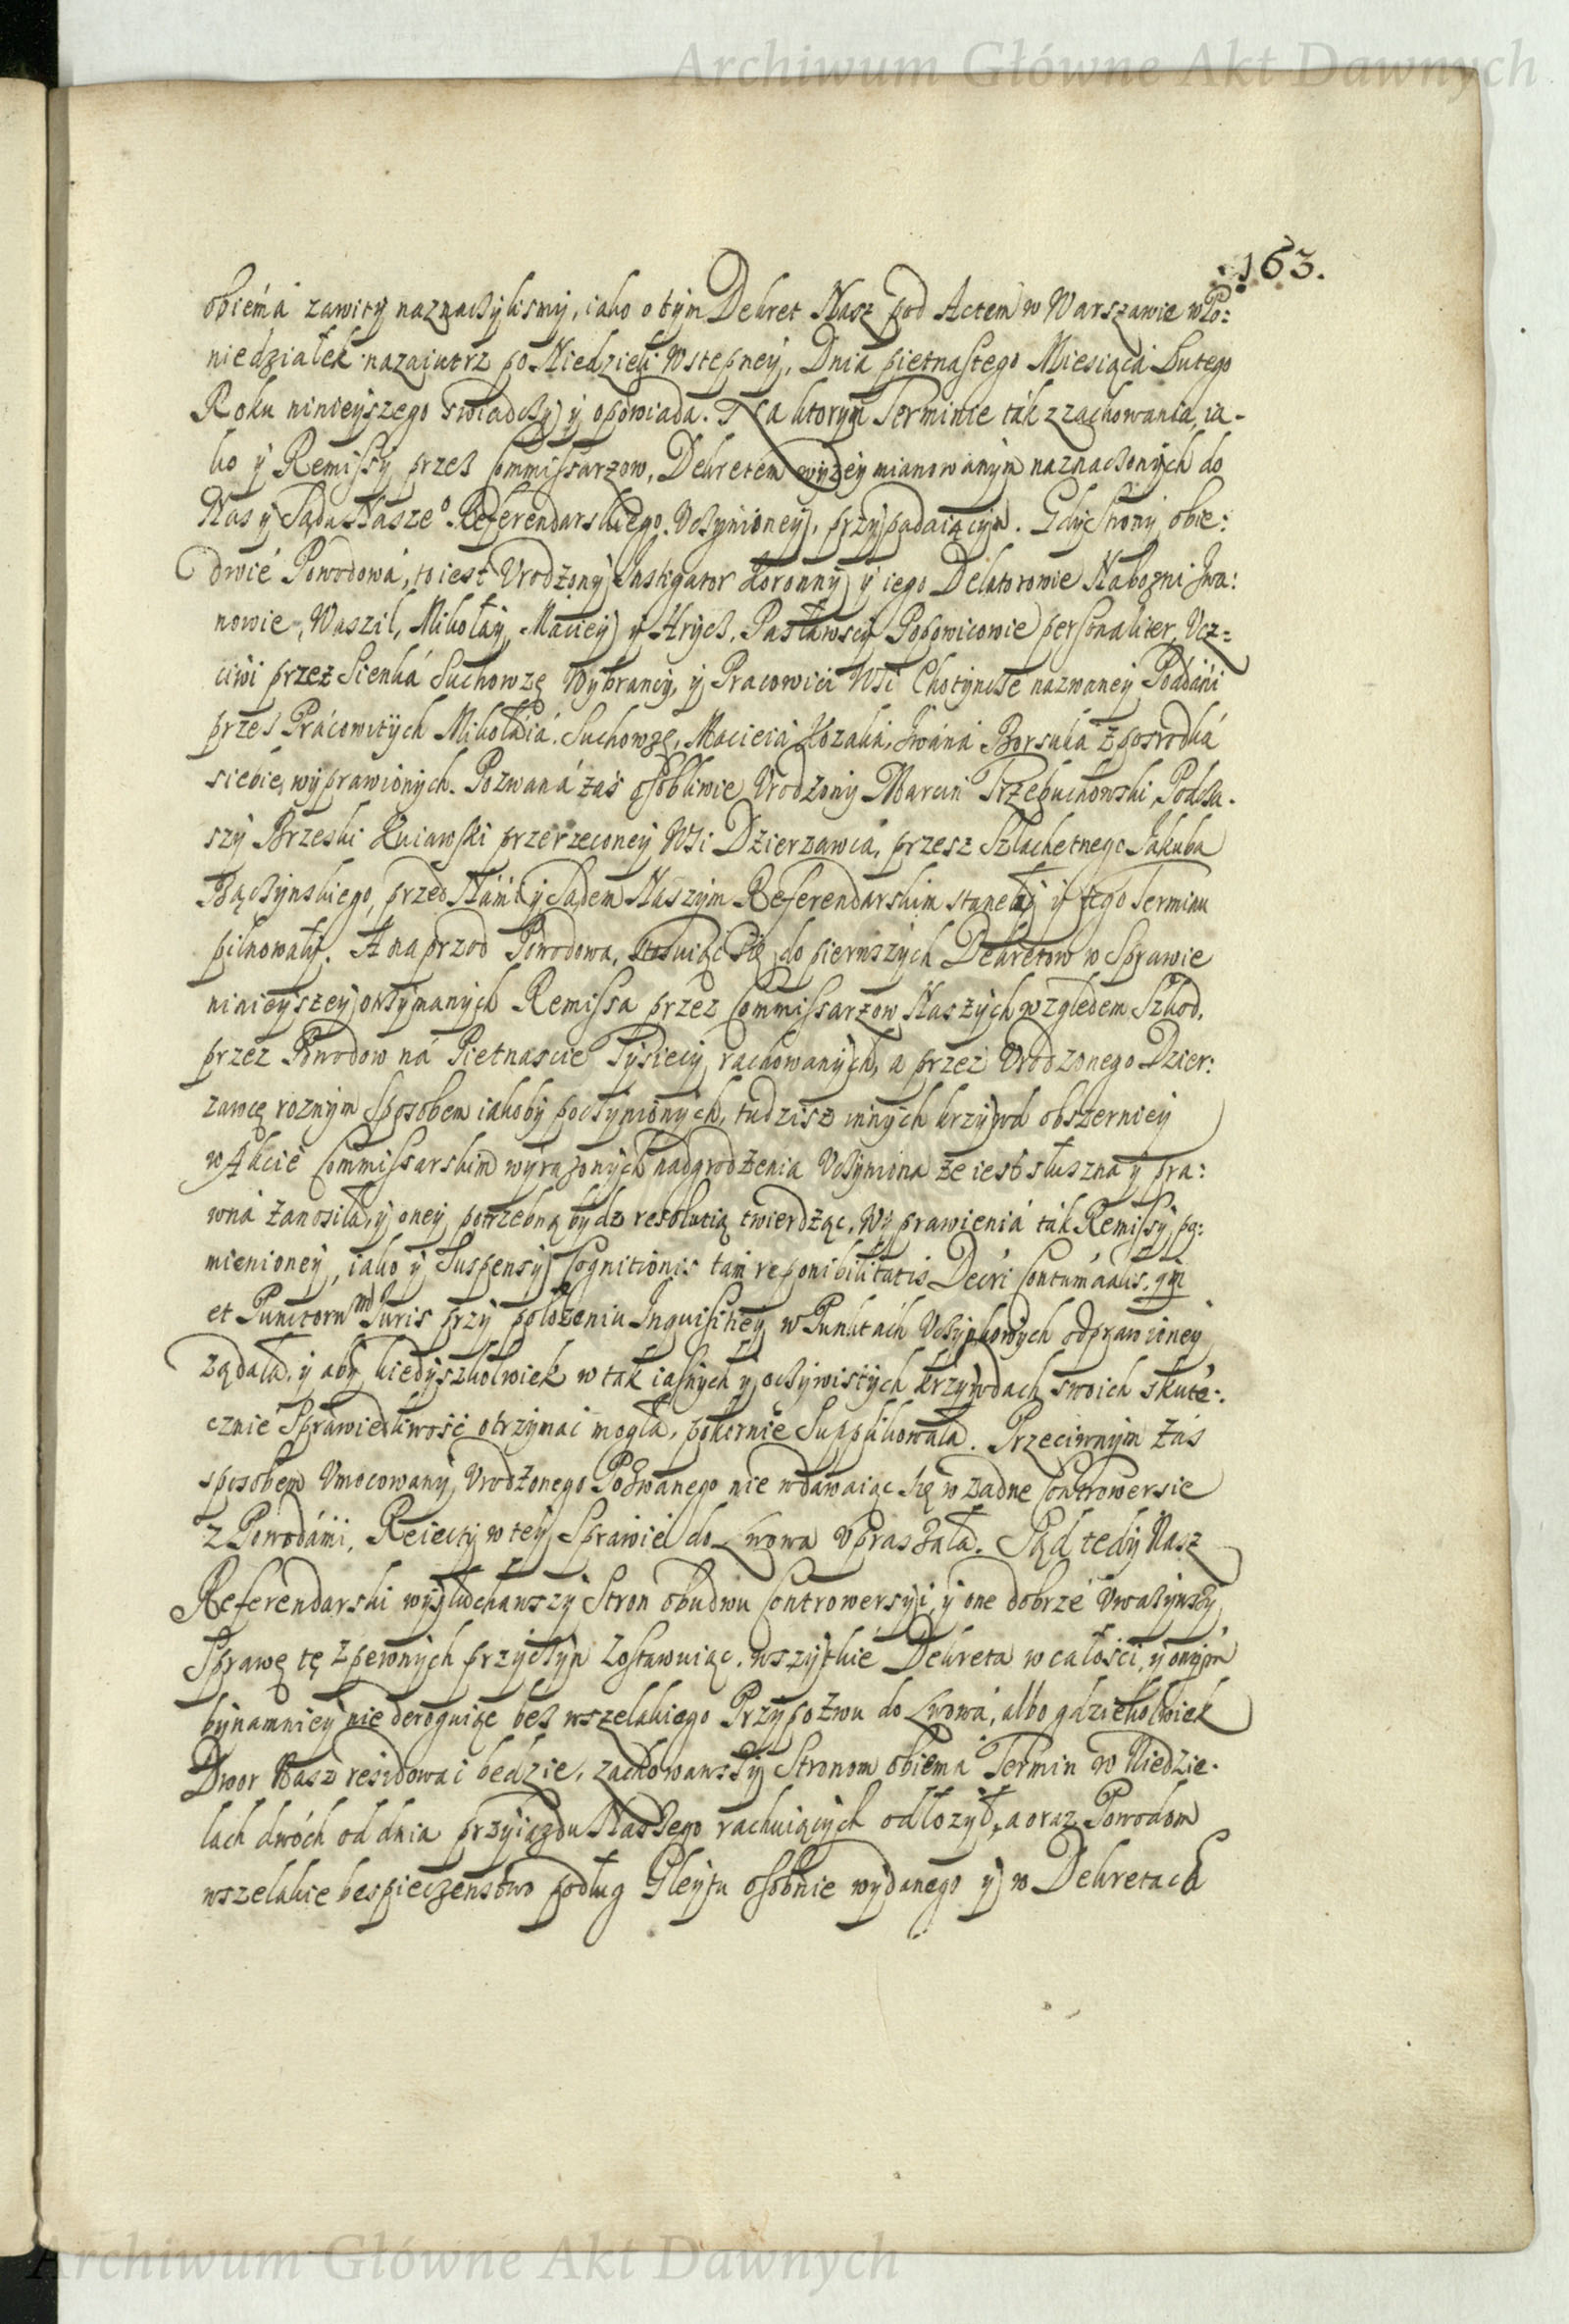 Archiwum Główne Akt Dawnych
163.
obiemá zawity naznaczylismy, iako o tym Dekret Nasz pod Actem w Warszawie w Po:
niedziałek nazaiutrz po Niedzieli Wstępney, Dnia piętnastego Miesiąca Lutego
Roku ninieyszego swiadczy y opowiada. Na ktorym Terminie ták z zachowania, ia-
ko y Remissy przez Commissarzow, Dekretem wyżey mianowanym naznaczonych do
Nas y Sądu Naszeº Referendarskiego Uczynioney, przypadaiącym. Gdy Strony obie:
dwie Powodowa, to iest Urodzony Instigator Koronny y iego Delatorowie Nabozni Iwa:
nowie, Waszil, Mikołay, Maciey y Hrycz, Pasławscy Popowicowie personaliter, Ucz=
ciwi przez Sienká Suchowzę Wybrancy, y Pracowici Wsi Chotyncze nazwaney Poddáni
przez Prácowitych Mikołáiá Suchowzę, Macieia Kozaka, Iwána Borsuka z posrodká
siebie wyprawionych. Pozwaná zaś osobliwie Urodzony Marcin Trzebuchowski, Podcza-
szy Brzeski Kuiawski przerzeconey Wsi Dzierzawca, przesz Szlachetnego Jakuba
Bączynskiego, przed Námi y Sądem Naszym Referendarskim stanęły y tego Terminu
pilnowały. A naprzod Powodowa, stosuiąc się do pierwszych Dekretow w Sprawie
ninieyszey otrzymanych Remissa przez Commissarzow Naszych względem Szkod,
przez Powodow ná Pietnascie Tysięcy rachowanych, a przez Urodzonego Dzier:
zawcę roznym sposobem iakoby poczynionych, tudzisz innych krzywd obszerniey
w Akcie Commissarskim wyrazonych nadgrodzenia Uczyniona ze iest słuszna y pra:
wná zanosiła, y oney potrzebną bydz resolutią twierdząc, Wyprawienia ták Remissy po:
mienioney, iako y Suspensy Cognitionis tam reponibilitatis Decri Contumacialis, qm
et Punctorum Iuris przy połozeniu Inquisitiey w Punktách Uczynkowych odprawioney
ządała, y aby kiedyszkolwiek w tak iasnych y oczywistych krzywdach swoich skute:
cznie Sprawiedliwość otrzymać mogła, pokornie Supplikowała. Przeciwnym zás
sposobem Umocowany Urodzonego Pozwanego nie wdawaiąc się w zadne Controwersie
z Powodámi, Reiecty w tey Sprawie do Lwowa upraszał. Sąd tedy Nasz
Referendarski wysłuchawszy Stron obudwu Controwersyi, y one dobrze uwazywszy
Sprawę tę z pewnych przyczyn zostawuiąc wszytkie Dekreta w całości, y onym
bynamniey nie deroguiąc bez wszelakiego Przypozwu do Lwowá, albo gdziekolwiek
Dwor Nasz residować będzie, zachowawszy Stronom obiema Termin w Niedzie-
lach dwóch od dnia przyiazdu Naszego rachuiących odłozył, a oraz Powodom
wszelakie bespieczenstwo podług Gleytu osobnie wydanego y w Dekretach
Archiwum Główne Akt Dawnych